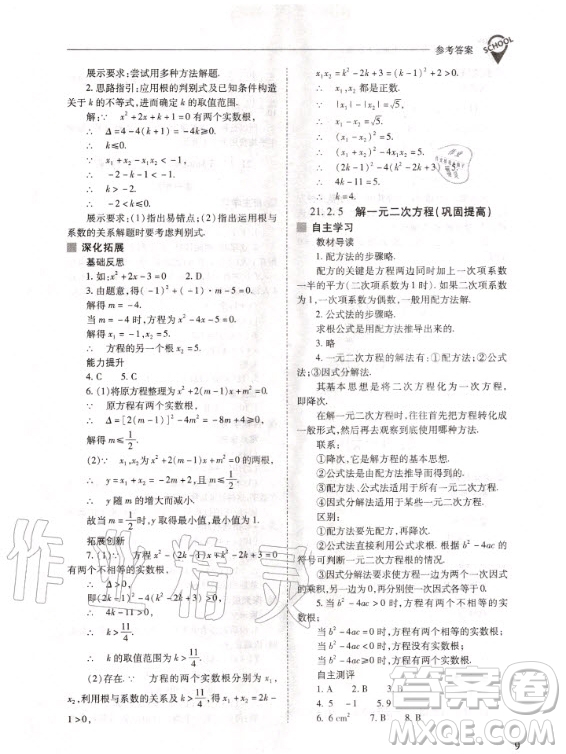 参考答案
SCHOOL
展示要求:尝试用多种方法解题.
2.思路指引:应用根的判别式及已知条件构造
关于k的不等式,进而确定k的取值范围.
解:∵ x²+2x+k+1=0有两个实数根,
∴ Δ=4-4(k+1)=-4k≥0.
∴ k≤0.
∵ x₁+x₂-x₁x₂<-1,
∴ -2-k<-1.
∴ k>-1.
∴ -1<k≤0.
展示要求:(1)指出易错点;(2)指出运用根与
系数的关系解题时要考虑判别式.
深化拓展
基础反思
1.如:x²+2x-3=0 2.D
3.由题意,得(-1)²+(-1)×m-5=0.
解得m=-4.
当m=-4时,方程为x²-4x-5=0.
解得x₁=-1,x₂=5.
∴ 方程的另一个根为5.
能力提升
4.C 5.C
6.(1)将原方程整理为x²+2(m-1)x+m²=0.
∵ 原方程有两个实数根,
∴ Δ=[2(m-1)]²-4m²=-8m+4≥0.
解得m≤1/2.
(2)∵ x₁,x₂为方程x²+2(m-1)x+m²=0的两根,
∴ y=x₁+x₂=-2m+2,且m≤1/2.
∴ y随m的增大而减小.
故当m=1/2时,y取得最小值,最小值为1.
拓展创新
7.(1)∵ 方程x²-(2k-1)x+k²-2k+3=0
有两个不相等的实数根,
∴ Δ>0,
即(2k-1)²-4(k²-2k+3)>0.
∴ 4k-11>0.
∴ k>11/4.
∴ k的取值范围为k>11/4.
(2)存在.∵ 方程的两个实数根分别为x₁,
x₂,利用根与系数的关系及k>11/4,得x₁+x₂=2k-
1>0,
x₁x₂=k²-2k+3=(k-1)²+2>0.
∴ x₁,x₂都是正数.
∵ |x₁|-|x₂|=√5,
∴ (x₁-x₂)²=5.
∴ (x₁+x₂)²-4x₁x₂=5.
∴ (2k-1)²-4(k²-2k+3)=5.
∴ 4k-11=5.
∴ k=4.
21.2.5 解一元二次方程(巩固提高)
自主学习
教材导读
1.配方法的步骤略.
配方的关键是方程两边同时加上一次项系数
一半的平方(二次项系数为1时).如果二次项系数
为1时,一次项系数为偶数,一般用配方法.
2.公式法的步骤略.
求根公式是用配方法推导出来的.
3.略
4.一元二次方程的解法有:①配方法;②公式
法;③因式分解法.
其基本思想是将二次方程化为一次方程,
即降次.
在解一元二次方程时,往往首先把方程转化成
一般形式,然后再去观察到底使用哪种方法.
联系:
①降次,它是解方程的基本思想.
②公式法是由配方法推导而得到的.
③配方法、公式法适用于所有一元二次方程,
因式分解法适用于某些一元二次方程.
区别:
①配方法要先配方,再开方求根.
②公式法直接利用公式求根.其中,b²-4ac的
符号可判断方程是否有解.
③因式分解法要使方程一边为两个一次因式
的乘积,另一边为0,再分别使各一次因式等于0.
5.当b²-4ac>0时,方程有两个不相等的
实数根;
当b²-4ac=0时,方程有两个相等的实数根;
当b²-4ac<0时,方程没有实数根.
自主测评
1.A 2.B
6.6 cm²
9
作业精灵
答案圈
MXQE.COM